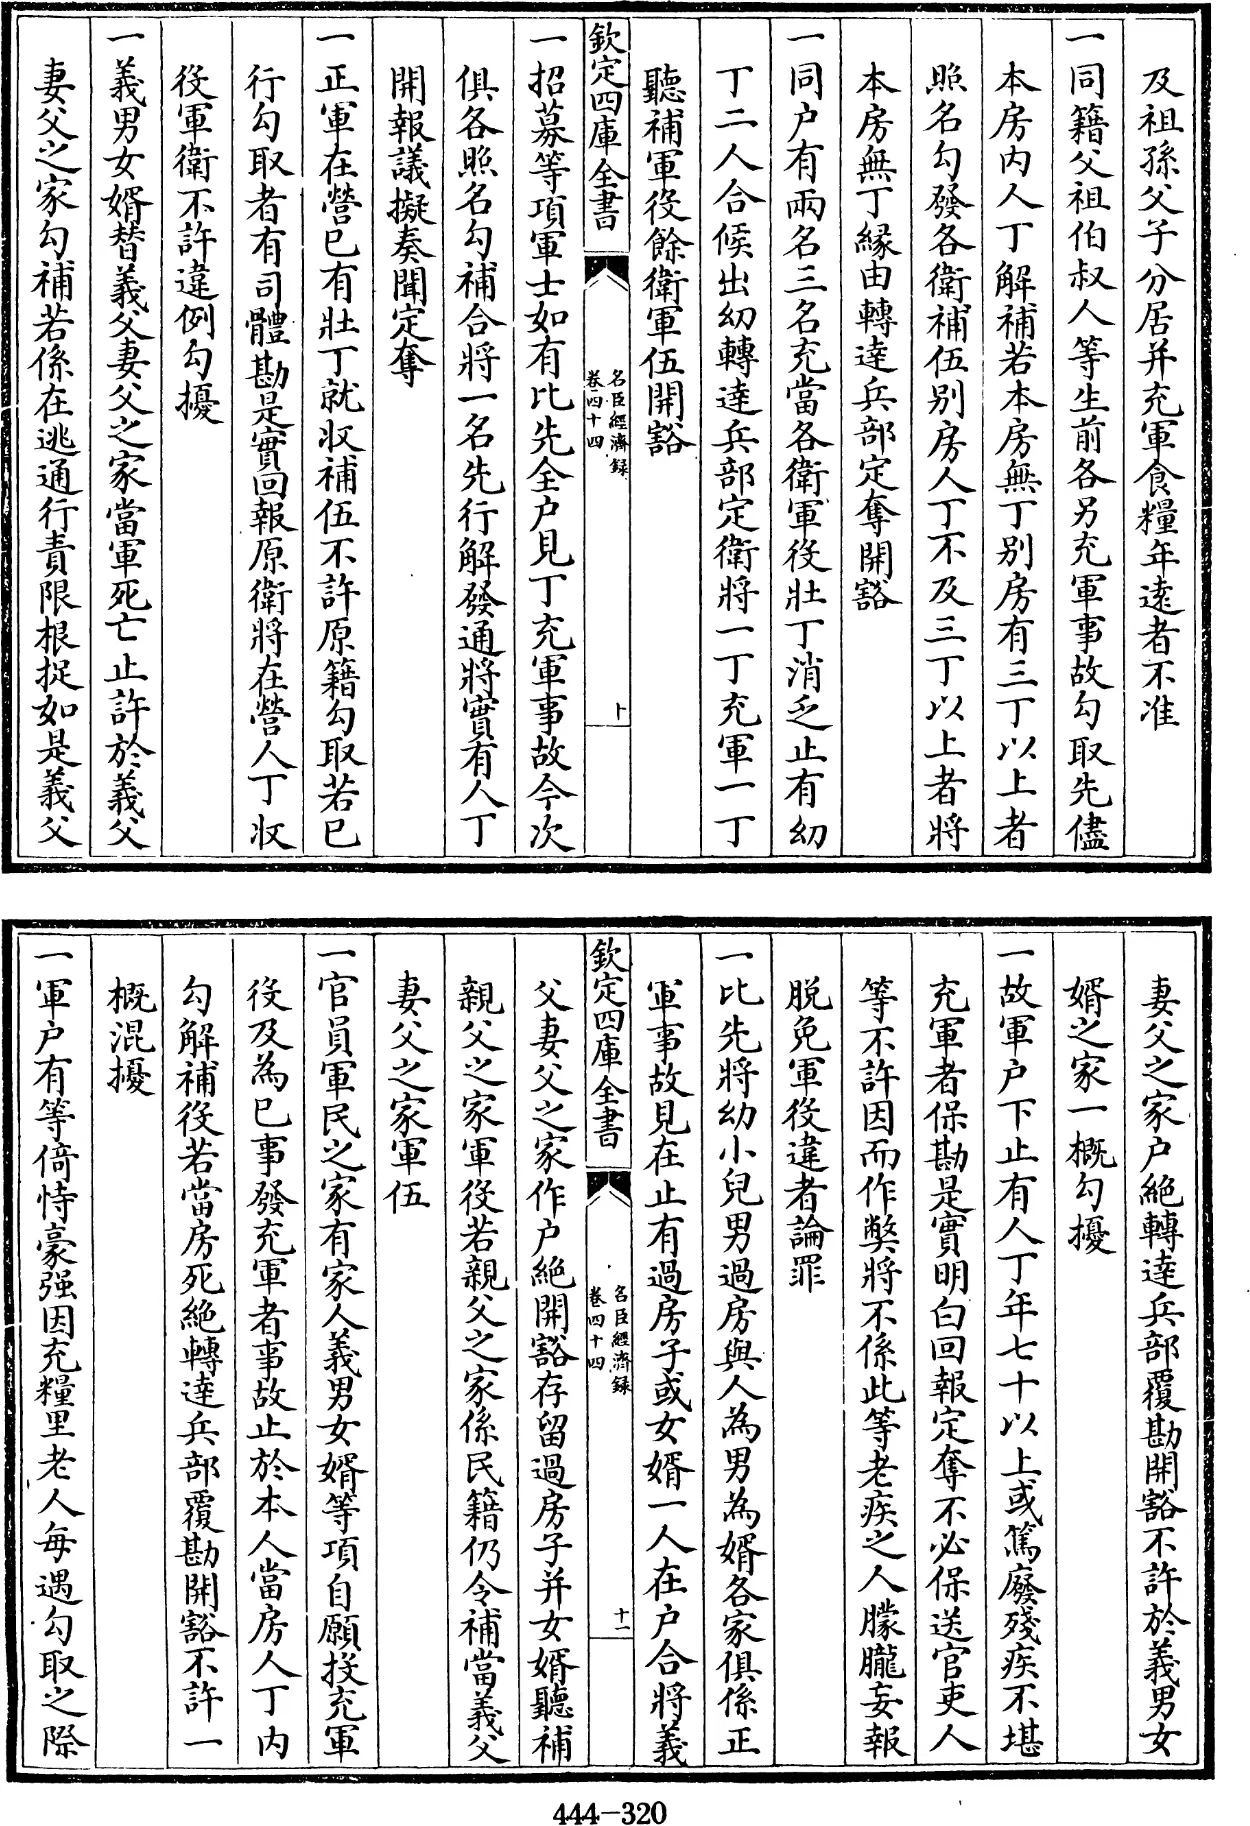 及祖孫父子分居并充軍食糧年逺者不准
一同籍父祖伯叔人等生前各另充軍事故勾取先儘
本房内人丁解補若本房無丁别房有三丁以上者
照名勾發各衛補伍别房人丁不及三丁以上者將
本房無丁縁由轉達兵部定奪開豁
一同户有兩名三名充當各衛軍役壯丁消乏止有幼
丁二人合候出幼轉達兵部定衛將一丁充軍一丁
聽補軍役餘衛軍伍開豁
欽定四庫全書
名臣經濟録
卷四十四
十
一招募等項軍士如有比先全户見丁充軍事故今次
俱各照名勾補合將一名先行解發通將實有人丁
開報議擬奏聞定奪
一正軍在營已有壯丁就收補伍不許原籍勾取若已
行勾取者有司體勘是實回報原衛將在營人丁收
役軍衛不許違例勾擾
一義男女婿替義父妻父之家當軍死亡止許於義父
妻父之家勾補若係在逃通行責限根捉如是義父
妻父之家户絶轉達兵部覆勘開豁不許於義男女
婿之家一概勾擾
一故軍户下止有人丁年七十以上或篤廢殘疾不堪
充軍者保勘是實明白回報定奪不必保送官吏人
等不許因而作弊將不係此等老疾之人朦朧妄報
脱免軍役違者論罪
一比先將幼小兒男過房與人為男為婿各家俱係正
軍事故見在止有過房子或女婿一人在户合將義
欽定四庫全書
名臣經濟録
卷四十四
十一
父妻父之家作户絶開豁存留過房子并女婿聽補
親父之家軍役若親父之家係民籍仍令補當義父
妻父之家軍伍
一官員軍民之家有家人義男女婿等項自願投充軍
役及為已事發充軍者事故止於本人當房人丁内
勾解補役若當房死絶轉達兵部覆勘開豁不許一
概混擾
一軍户有等倚恃豪强因充糧里老人每遇勾取之際
444-320